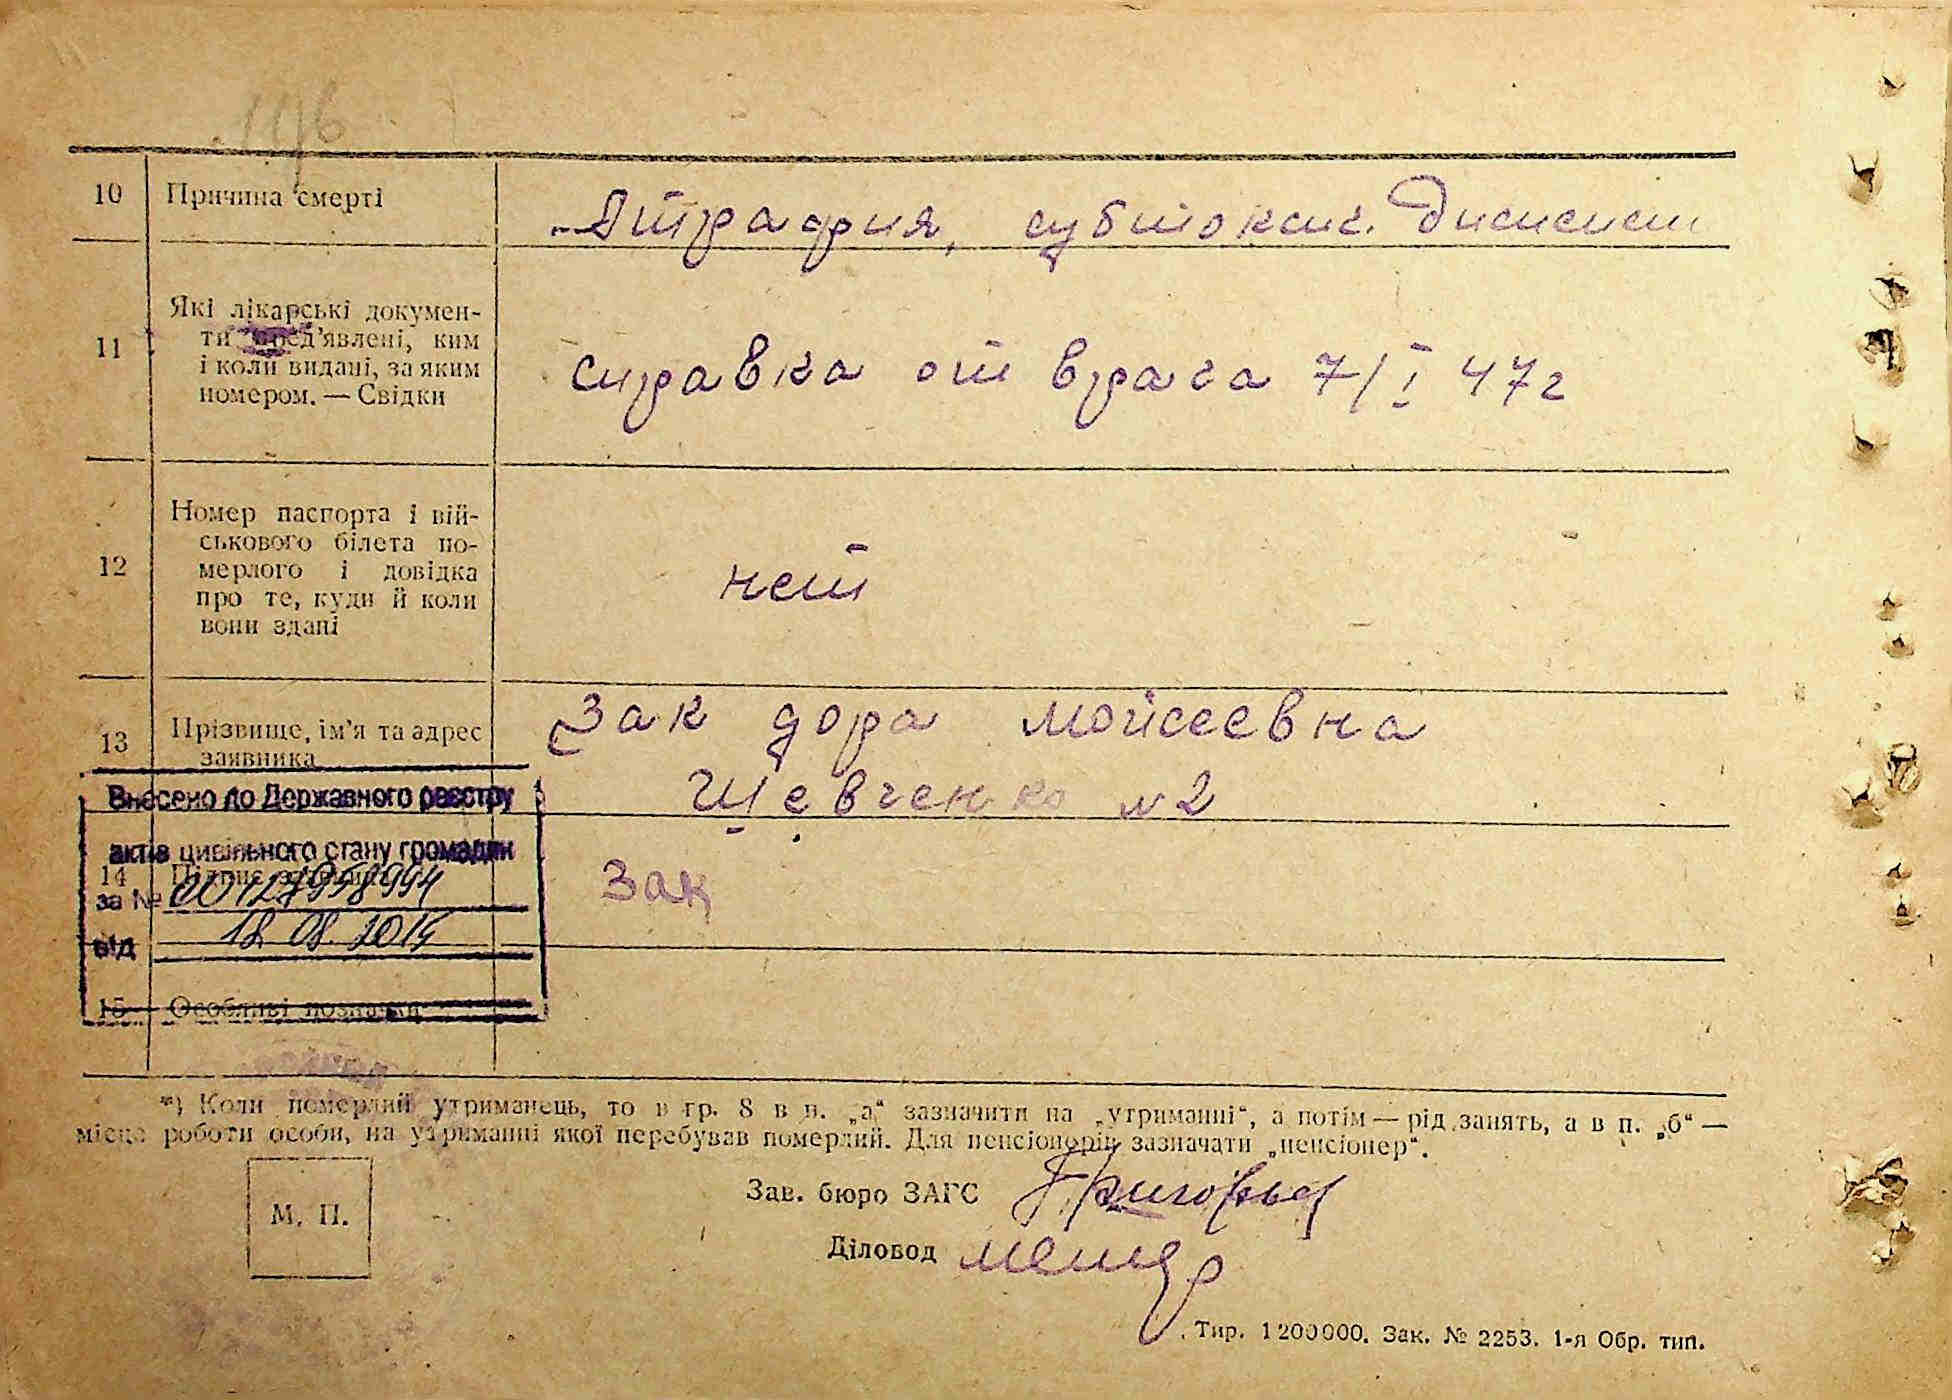 146
10 Причина смерті
Атрафия, субтоксич. диспепси
11 Які лікарські докумен-
ти пред'явлені, ким
і коли видані, за яким
номером. — Свідки
справка от врача 7/I 47 г
12 Номер паспорта і вій-
ськового білета по-
мерлого і довідка
про те, куди й коли
вони здані
нет
13 Прізвище, ім'я та адрес
заявника
Зак дора мойсеевна
Шевченко № 2
Внесено до Державного реєстру
актів цивільного стану громадян
14 Підпис заявника
Зак
за № 00127958994
від 18.08.2014
15 Особливі позначки
*) Коли померлий утриманець, то в гр. 8 в п. „а“ зазначити на „утриманні“, а потім — рід занять, а в п. „б“ —
місце роботи особи, на утриманні якої перебував померлий. Для пенсіонерів зазначати „пенсіонер“.
М. П.
Зав. бюро ЗАГС
Діловод
Тир. 1200000. Зак. № 2253. 1-я Обр. тип.